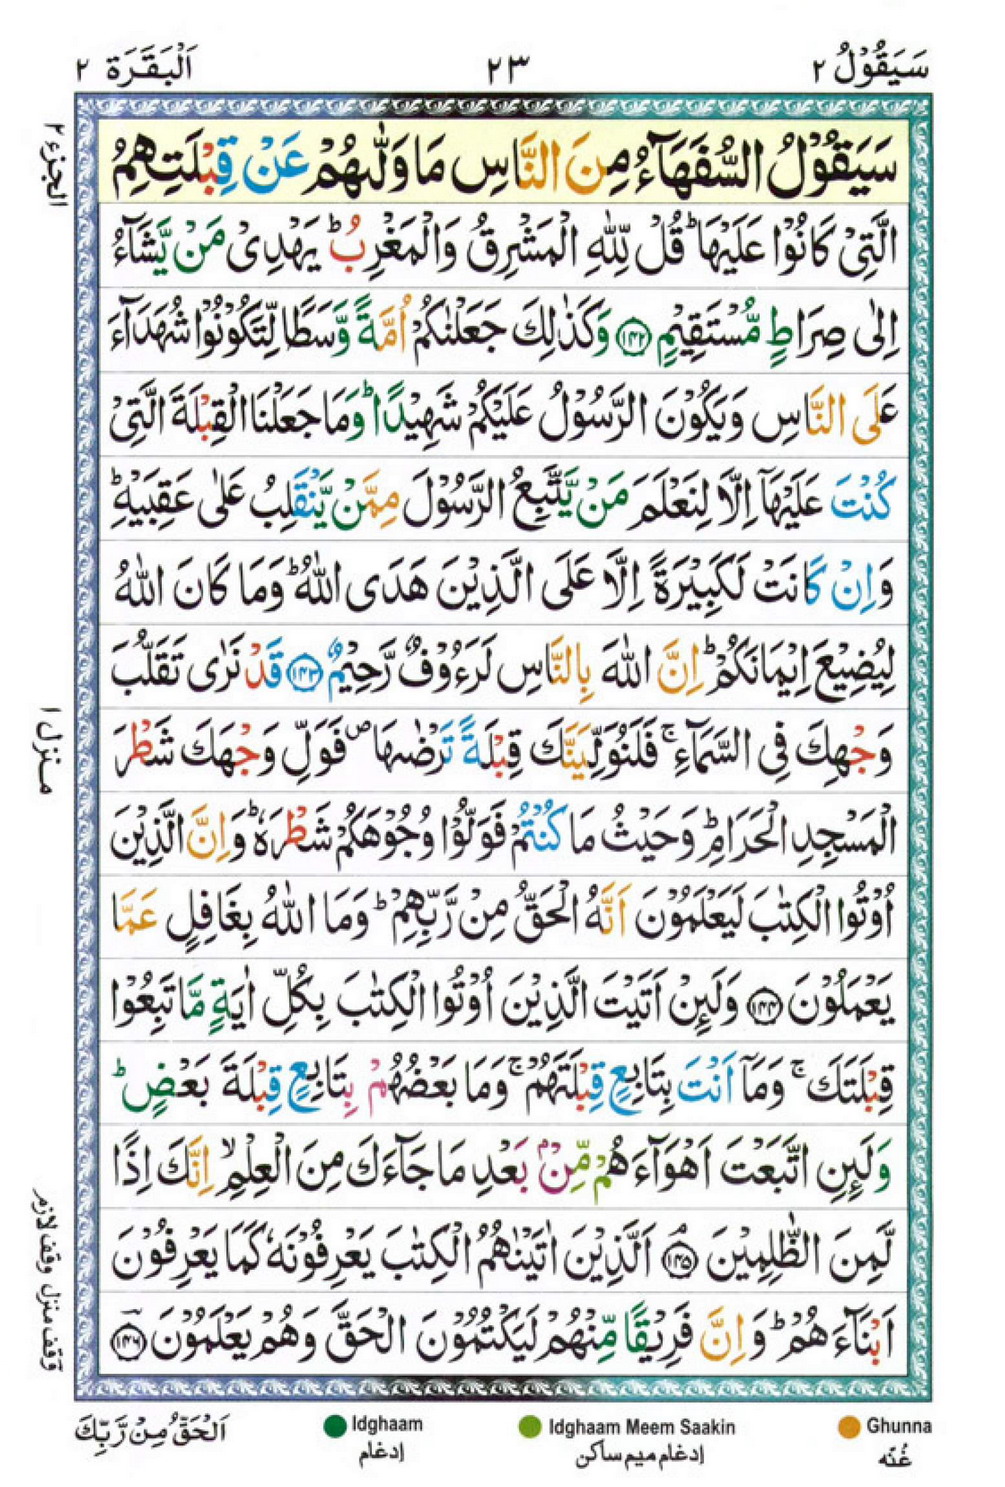 سَيَقُوْلُ ٢
٢٣
اَلْبَقَرَة ٢
الجزء ٢
سَيَقُوْلُ السُّفَهَآءُ مِنَ النَّاسِ مَا وَلّٰىهُمْ عَنْ قِبْلَتِهِمُ
الَّتِيْ كَانُوْا عَلَيْهَا ؕ قُلْ لِّلّٰهِ الْمَشْرِقُ وَالْمَغْرِبُ ؕ يَهْدِيْ مَنْ يَّشَآءُ
اِلٰى صِرَاطٍ مُّسْتَقِيْمٍ ﴿۱۴۲﴾ وَكَذٰلِكَ جَعَلْنٰكُمْ اُمَّةً وَّسَطًا لِّتَكُوْنُوْا شُهَدَآءَ
عَلَى النَّاسِ وَيَكُوْنَ الرَّسُوْلُ عَلَيْكُمْ شَهِيْدًا ؕ وَمَا جَعَلْنَا الْقِبْلَةَ الَّتِيْ
كُنْتَ عَلَيْهَآ اِلَّا لِنَعْلَمَ مَنْ يَّتَّبِعُ الرَّسُوْلَ مِمَّنْ يَّنْقَلِبُ عَلٰى عَقِبَيْهِ ؕ
وَاِنْ كَانَتْ لَكَبِيْرَةً اِلَّا عَلَى الَّذِيْنَ هَدَى اللّٰهُ ؕ وَمَا كَانَ اللّٰهُ
لِيُضِيْعَ اِيْمَانَكُمْ ؕ اِنَّ اللّٰهَ بِالنَّاسِ لَرَءُوْفٌ رَّحِيْمٌ ﴿۱۴۳﴾ قَدْ نَرٰى تَقَلُّبَ
وَجْهِكَ فِي السَّمَآءِ ۚ فَلَنُوَلِّيَنَّكَ قِبْلَةً تَرْضٰىهَا ۪ فَوَلِّ وَجْهَكَ شَطْرَ
الْمَسْجِدِ الْحَرَامِ ؕ وَحَيْثُ مَا كُنْتُمْ فَوَلُّوْا وُجُوْهَكُمْ شَطْرَهٗ ؕ وَاِنَّ الَّذِيْنَ
اُوْتُوا الْكِتٰبَ لَيَعْلَمُوْنَ اَنَّهُ الْحَقُّ مِنْ رَّبِّهِمْ ؕ وَمَا اللّٰهُ بِغَافِلٍ عَمَّا
يَعْمَلُوْنَ ﴿۱۴۴﴾ وَلَئِنْ اَتَيْتَ الَّذِيْنَ اُوْتُوا الْكِتٰبَ بِكُلِّ اٰيَةٍ مَّا تَبِعُوْا
قِبْلَتَكَ ۚ وَمَآ اَنْتَ بِتَابِعٍ قِبْلَتَهُمْ ۚ وَمَا بَعْضُهُمْ بِتَابِعٍ قِبْلَةَ بَعْضٍ ؕ
وَلَئِنِ اتَّبَعْتَ اَهْوَآءَهُمْ مِّنْۢ بَعْدِ مَا جَآءَكَ مِنَ الْعِلْمِ ۙ اِنَّكَ اِذًا
لَّمِنَ الظّٰلِمِيْنَ ﴿۱۴۵﴾ۘ اَلَّذِيْنَ اٰتَيْنٰهُمُ الْكِتٰبَ يَعْرِفُوْنَهٗ كَمَا يَعْرِفُوْنَ
اَبْنَآءَهُمْ ؕ وَاِنَّ فَرِيْقًا مِّنْهُمْ لَيَكْتُمُوْنَ الْحَقَّ وَهُمْ يَعْلَمُوْنَ ﴿۱۴۶﴾
منزل ۱
وقف منزل وقف لازم
اَلْحَقُّ مِنْ رَّبِّكَ
Idghaam
ادغام
Idghaam Meem Saakin
ادغام ميم ساكن
Ghunna
غُنّه